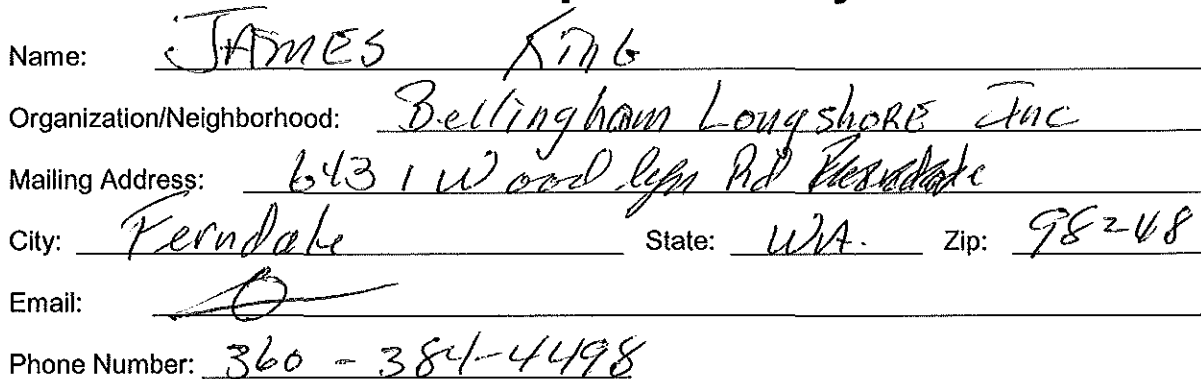 Name: JAMES King
Organization/Neighborhood: Bellingham LongshoRE Inc
Mailing Address: 6431 Woodlyn Rd Ferndale
City: Ferndale State: WA. Zip: 98248
Email:
Phone Number: 360-384-4498